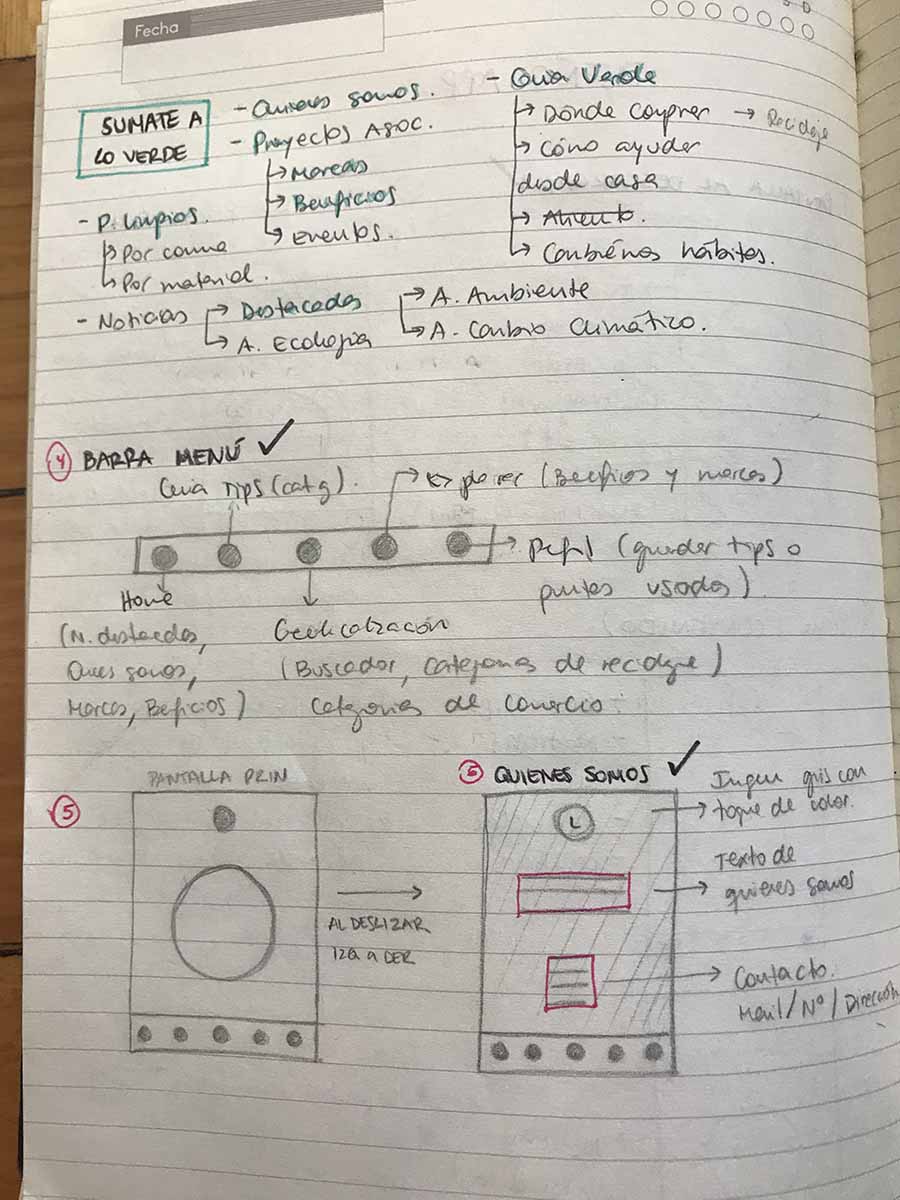 Fecha
D
SUMATE A
LO VERDE
- Quienes somos.
- Proyectos Asoc.
→ Marcas
→ Beneficios
→ Eventos.
- P. Limpios.
→ Por comuna
→ Por material.
- Noticias → Destacadas → A. Ambiente
→ A. Ecología → A. Cambio Climático.
- Guia Verde
→ Dónde comprar → Reciclaje
→ Cómo ayudar
desde casa
→ Cambiemos hábitos.
4 BARRA MENÚ ✓
Guia Tips (catg).
→ Explorer (Beneficios y marcas)
→ Perfil (guardar tips o
puntos usados)
Home
(N. destacadas,
Quienes somos,
Marcas, Beneficios)
Geolicalización
(Buscador, categorias de reciclaje)
categorias de comercio.
5
PANTALLA PRIN
AL DESLIZAR
IZQ a DER
6 QUIENES SOMOS ✓
L
→ Imagen gris con
toque de color.
→ Texto de
quienes somos
→ Contacto.
Mail/Nº/Dirección